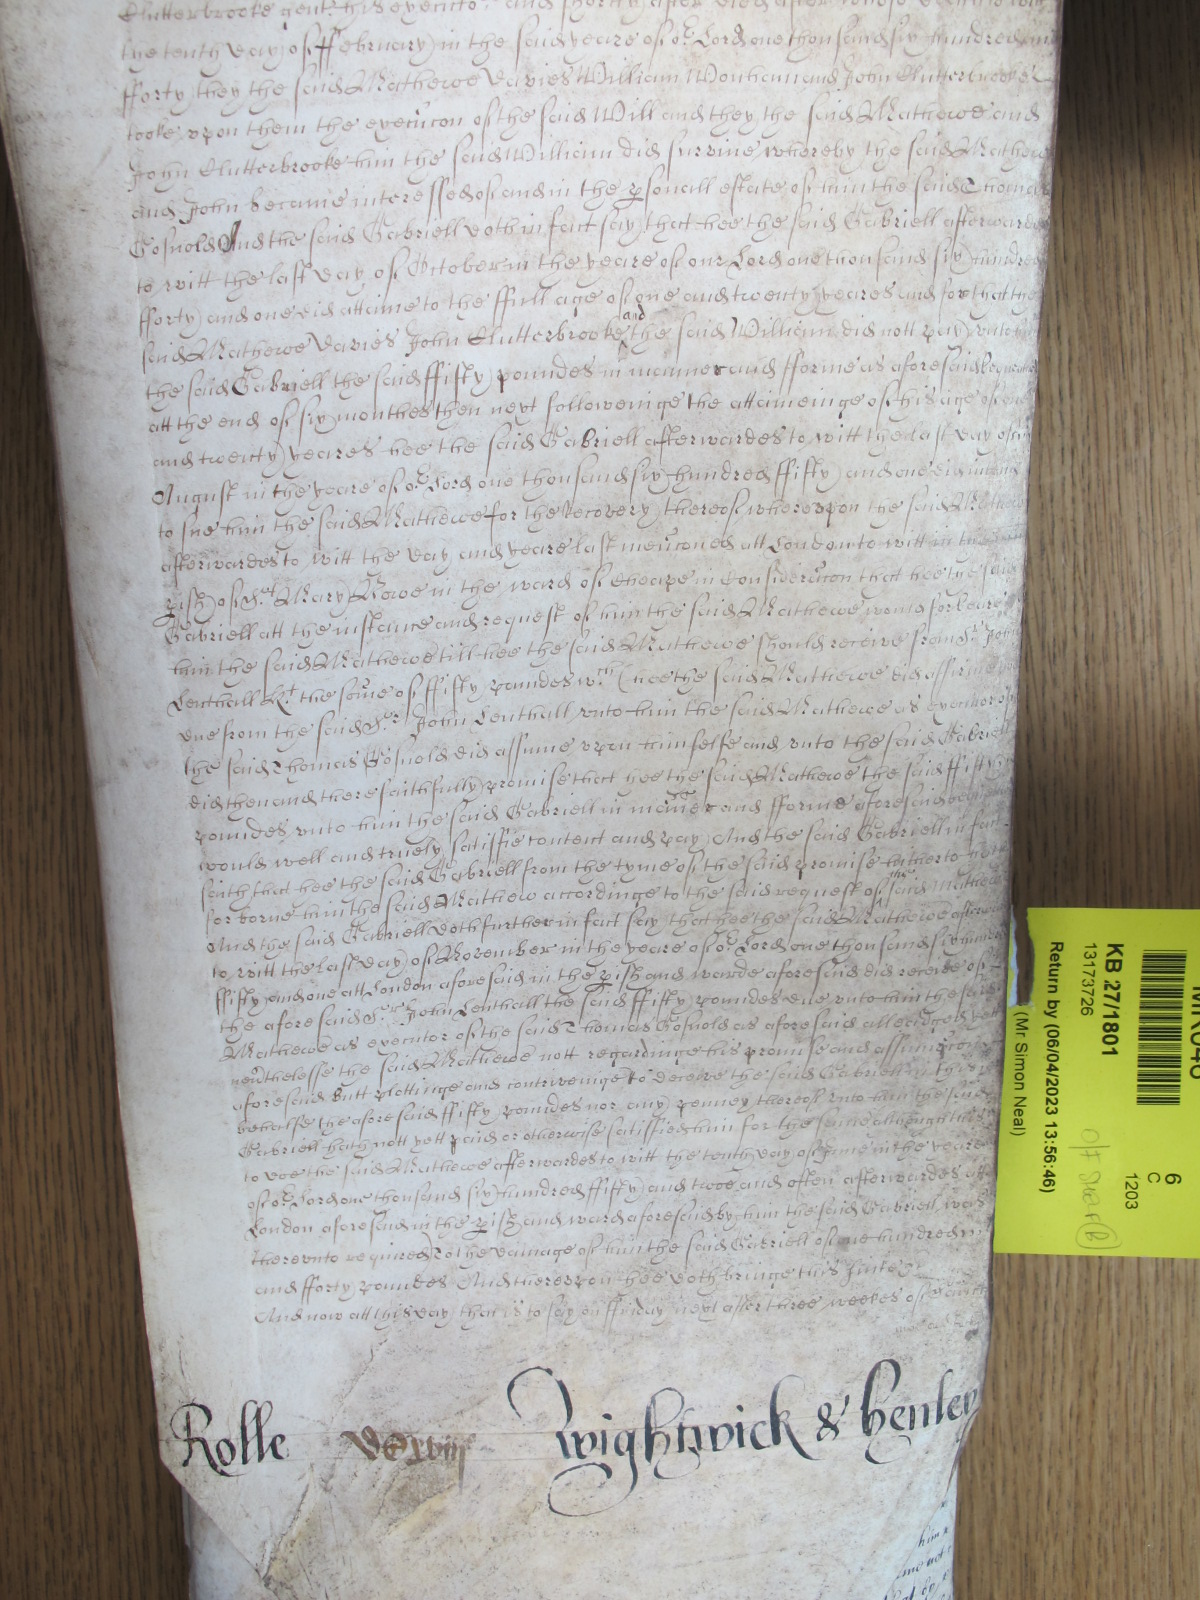 Clutterbrooke gent his executors and shortly after
the tenth day of ffebruary in the said yeare of or Lord one thousand six hundred and
fforty they the said Mathewe Davies William Wonham and John Clutterbrooke
tooke vpon them the execucon of the said Will and they the said Mathewe and
John Clutterbrooke him the said William did survive whereby the said Mathew
and John became interessed of and in the psonall estate of him the said Thomas
Gosnold And the said Gabriell doth in fact say that hee the said Gabriell afterwardes
to witt the last day of October in the yeare of our Lord one thousand six hundred
fforty and one did attaine to the ffull age of one and twenty yeares and for that the
said Mathewe Davies John Clutterbrooke and the said William did nott pay vnto him
the said Gabriell the said ffifty poundes in manner and fforme as aforesaid bequeathed
att the end of six monthes then next followeinge the attaineinge of his age of one
and twenty yeares hee the said Gabriell afterwardes to witt the last day of
August in the yeare of or Lord one thousand six hundred ffifty and one did intend
to sue him the said Mathewe for the recovery thereof wherevpon the said Mathewe
afterwardes to witt the day and yeare last mencioned att London to witt in the
pish of St Mary Bowe in the ward of Cheape in consideracon that hee the said
Gabriell att the instance and request of him the said Mathewe would forbeare
him the said Mathewe till hee the said Mathewe should receive from Sr John
Lenthall Kt the some of ffifty poundes wch (hee the said Mathewe did affirme
due from the said Sr John Lenthall vnto him the said Mathewe as executor of
the said Thomas Gosnold did assume vpon himselfe and vnto the said Gabriell
did then and there faithfully promise that hee the said Mathewe the said ffifty
poundes vnto him the said Gabriell in manner and fforme aforesaid
would well and truely satisfie content and pay And the said Gabriell in fact
saith that hee the said Gabriell from the tyme of the said promise hitherto hath
forborne him the said Mathew accordinge to the said request of the said Mathewe
And the said Gabriell doth further in fact say that hee the said Mathewe afterwardes
to witt the last day of November in the yeare of or Lord one thousand six hundred
ffifty and one att London aforesaid in the pish and warde aforesaid did receive of
the aforesaid Sr John Lenthall the said ffifty poundes due vnto him the said
Mathewe as executor of the said Thomas Gosnold as aforesaid alleadged yett
neverthelesse the said Mathewe nott regardinge his promise and assumpcon
aforesaid Butt plottinge and contriveinge to deceive the said Gabriell in this
behalfe the aforesaid ffifty poundes nor any penney thereof vnto him the said
Gabriell hath nott yett paid or otherwise satisfied him for the same although
to doe the said Mathewe afterwardes to witt the tenth day of June in the yeare
of or Lord one thousand six hundred ffifty and twoe and often afterwardes att
London aforesaid in the pish and ward aforesaid by him the said Gabriell was
therevnto required To the damage of him the said Gabriell of one hundred
and fforty poundes And therevpon hee doth bringe this suite
And now att this day that is to say on ffriday next after three weekes of
Rolle
Wightwick & Henley
KB 27/1801
13173726
Return by (06/04/2023 13:56:46)
(Mr Simon Neal)
6
C
1203